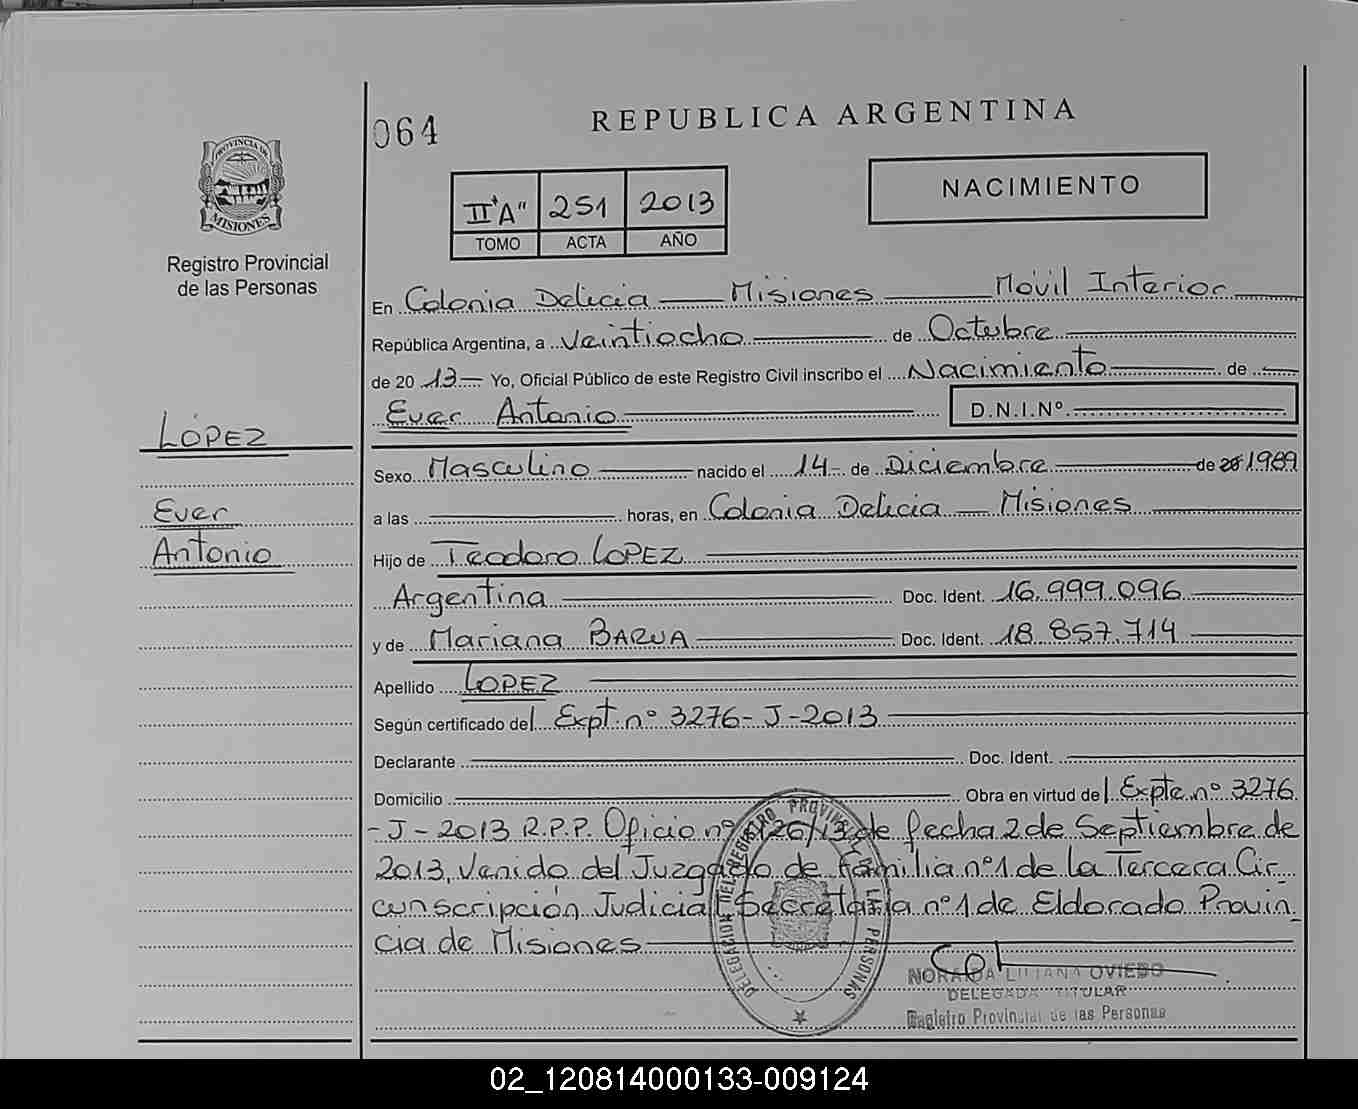 064
REPUBLICA ARGENTINA
PROVINCIA DE MISIONES
II "A" 251 2013
TOMO ACTA AÑO
NACIMIENTO
Registro Provincial
de las Personas
En Colonia Delicia Misiones Móvil Interior
República Argentina, a Veintiocho de Octubre
de 20 13 Yo, Oficial Público de este Registro Civil inscribo el Nacimiento de
Ever Antonio D.N.I.Nº
LÓPEZ
Sexo Masculino nacido el 14 de Diciembre de 20 1989
Ever
a las horas, en Colonia Delicia Misiones
Antonio
Hijo de Teodoro LOPEZ
Argentina Doc. Ident. 16.999.096
y de Mariana BARUA Doc. Ident. 18.857.714
Apellido LOPEZ
Según certificado del Expt. nº 3276-J-2013
Declarante Doc. Ident.
Domicilio Obra en virtud del Expte. nº 3276
-J-2013 R.P.P. Oficio nº 126/13 de fecha 2 de Septiembre de
2013, Venido del Juzgado de Familia nº1 de la Tercera Cir
cunscripción Judicial Secretaría nº1 de Eldorado Provin
cia de Misiones
DELEGACION DEL REGISTRO PROVINCIAL DE LAS PERSONAS
LILIANA OVIEDO
DELEGADA TITULAR
Registro Provincial de las Personas
02_120814000133-009124